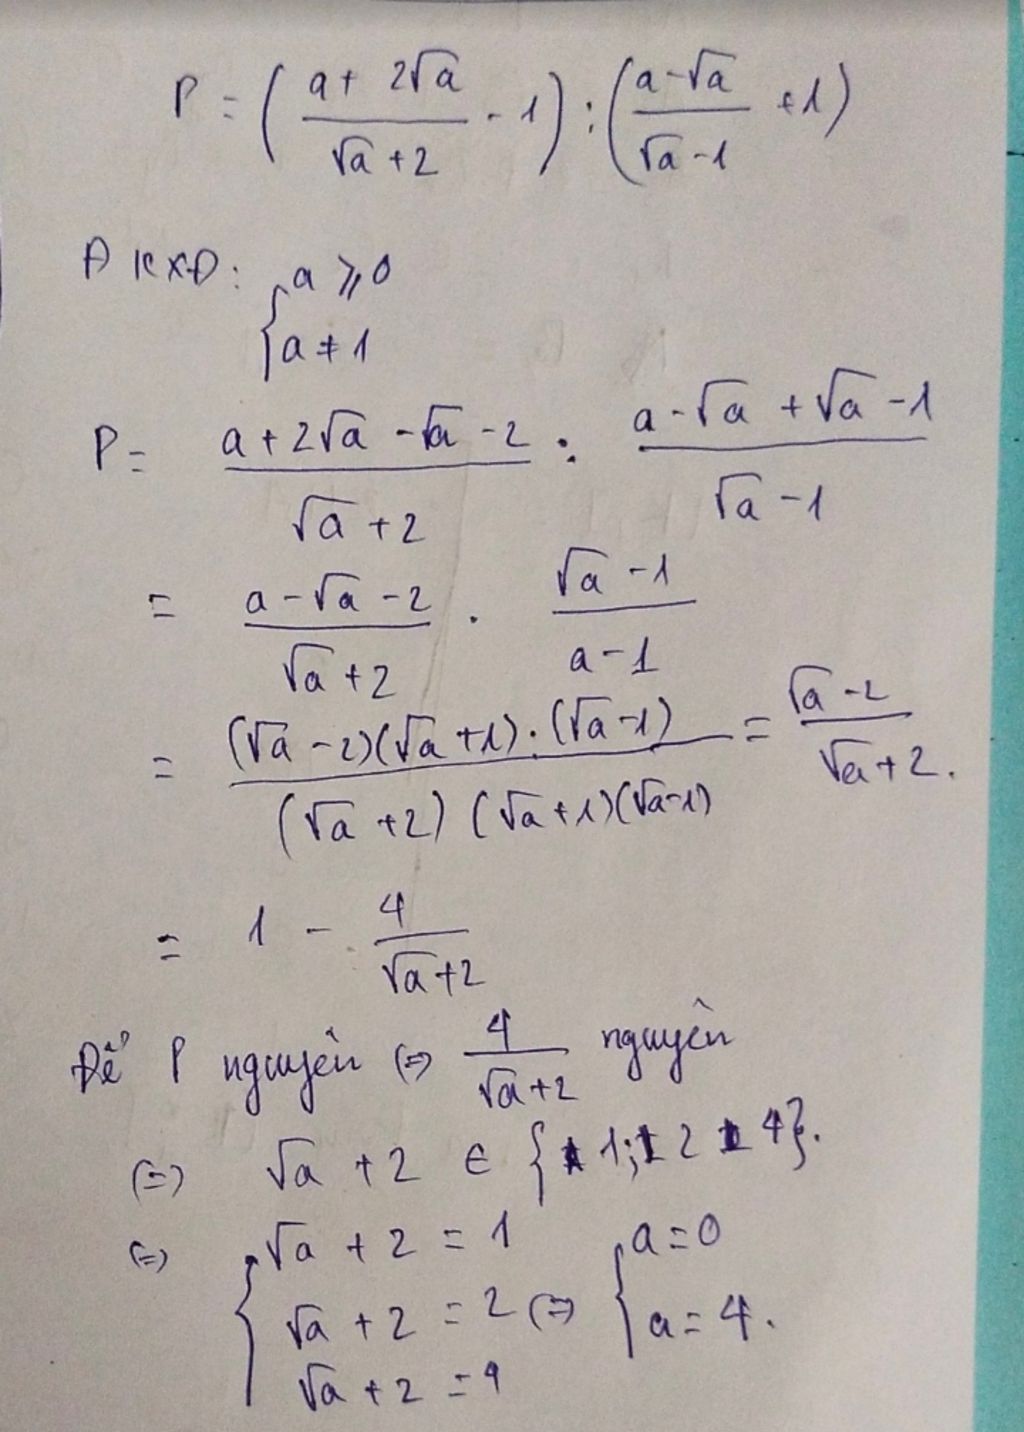 P = ( (a + 2√a)/(√a + 2) - 1 ) : ( (a - √a)/(√a - 1) + 1 )
ĐKXĐ: { a ⩾ 0
a ≠ 1
P = (a + 2√a - √a - 2)/(√a + 2) : (a - √a + √a - 1)/(√a - 1)
= (a - √a - 2)/(√a + 2) . (√a - 1)/(a - 1)
= ((√a - 2)(√a + 1).(√a - 1))/((√a + 2)(√a + 1)(√a - 1)) = (√a - 2)/(√a + 2).
= 1 - 4/(√a + 2)
Để P nguyên (=) 4/(√a + 2) nguyên
(=) √a + 2 ∈ { 1; 2 4}.
(=) { √a + 2 = 1
√a + 2 = 2 (=) { a = 0
a = 4.
√a + 2 = 4